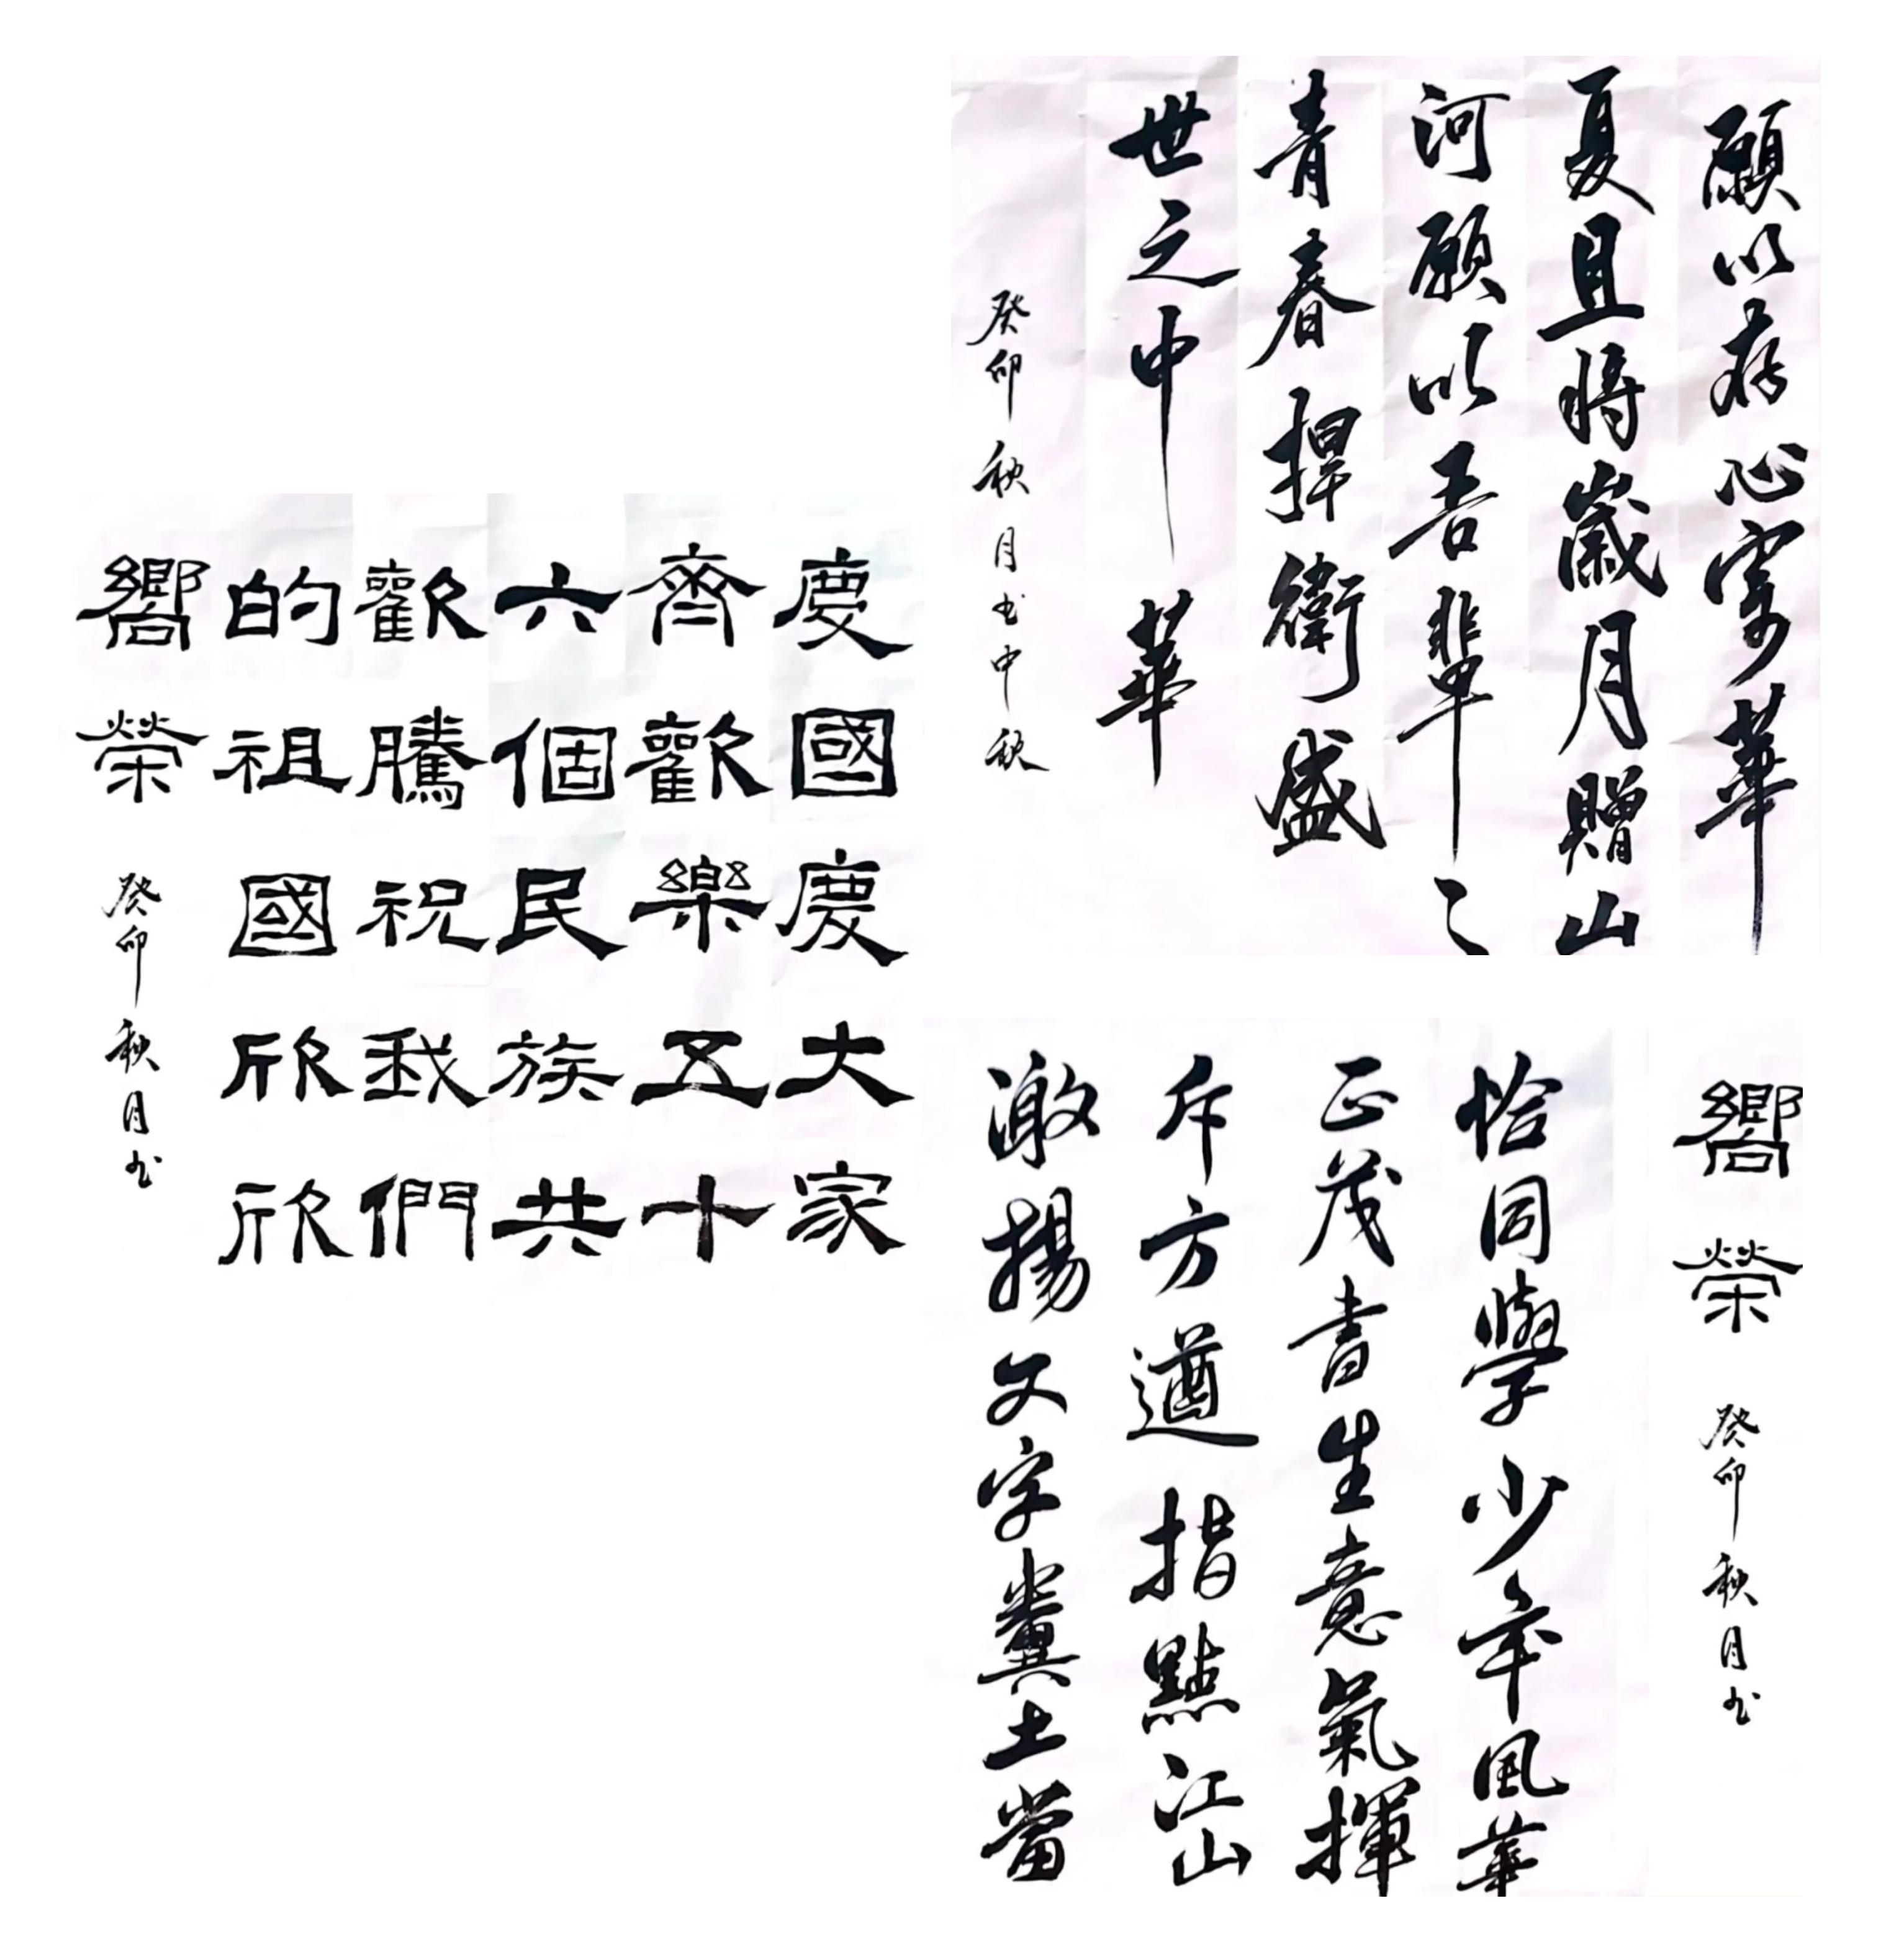 願以存心寄華
夏且將歲月贈山
河願以吾輩之
青春捍衛盛
世之中華
癸卯秋月书中秋
慶國慶大家
齊歡樂五十
六個民族共
歡騰祝我們
的祖國欣欣
嚮榮
癸卯秋月书
嚮榮
癸卯秋月书
恰同學少年風華
正茂書生意氣揮
斥方遒指點江山
激揚文字糞土當